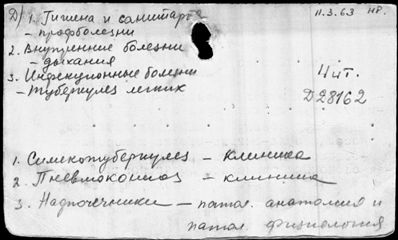 Д) 1. Гигиена и санитария 11.3.63 НР.
– профболезни
2. Внутренние болезни
– дыхания
3. Инфекционные болезни Чит.
– Туберкулез легких Д28162
1. Силикотуберкулез – клиника
2. Пневмокониоз – клиника
3. Надпочечники – патол. анатомия и
патол. физиология